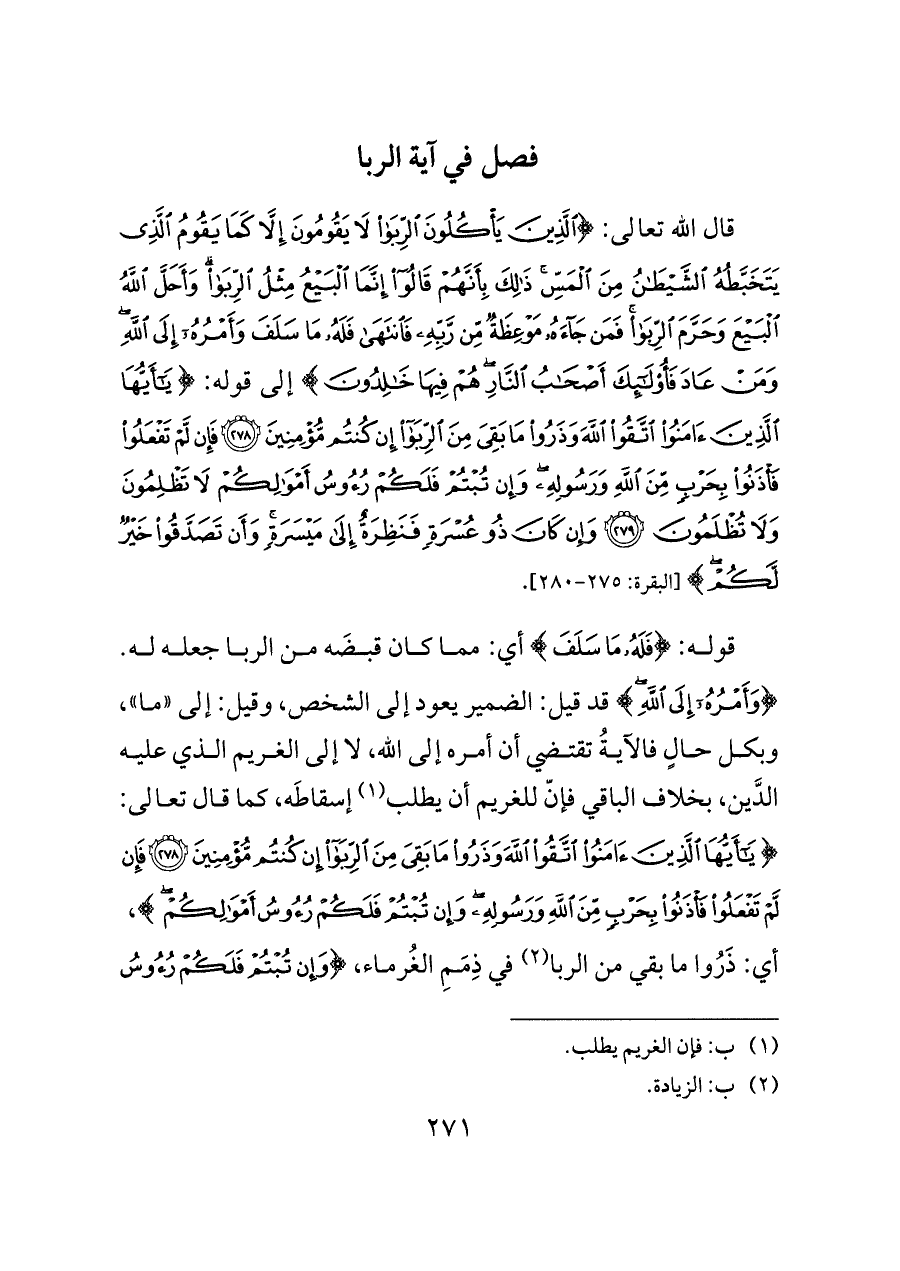 فصل في آية الربا
قال الله تعالى: ﴿ٱلَّذِينَ يَأۡكُلُونَ ٱلرِّبَوٰاْ لَا يَقُومُونَ إِلَّا كَمَا يَقُومُ ٱلَّذِى
يَتَخَبَّطُهُ ٱلشَّيۡطَٰنُ مِنَ ٱلۡمَسِّۚ ذَٰلِكَ بِأَنَّهُمۡ قَالُوٓاْ إِنَّمَا ٱلۡبَيۡعُ مِثۡلُ ٱلرِّبَوٰاْۗ وَأَحَلَّ ٱللَّهُ
ٱلۡبَيۡعَ وَحَرَّمَ ٱلرِّبَوٰاْۚ فَمَن جَآءَهُۥ مَوۡعِظَةٌ مِّن رَّبِّهِۦ فَٱنتَهَىٰ فَلَهُۥ مَا سَلَفَ وَأَمۡرُهُۥٓ إِلَى ٱللَّهِۖ
وَمَنۡ عَادَ فَأُوْلَٰٓئِكَ أَصۡحَٰبُ ٱلنَّارِۖ هُمۡ فِيهَا خَٰلِدُونَ﴾ إلى قوله: ﴿يَٰٓأَيُّهَا
ٱلَّذِينَ ءَامَنُواْ ٱتَّقُواْ ٱللَّهَ وَذَرُواْ مَا بَقِىَ مِنَ ٱلرِّبَوٰٓاْ إِن كُنتُم مُّؤۡمِنِينَ ٢٧٨ فَإِن لَّمۡ تَفۡعَلُواْ
فَأۡذَنُواْ بِحَرۡبٍ مِّنَ ٱللَّهِ وَرَسُولِهِۦۖ وَإِن تُبۡتُمۡ فَلَكُمۡ رُءُوسُ أَمۡوَٰلِكُمۡ لَا تَظۡلِمُونَ
وَلَا تُظۡلَمُونَ ٢٧٩ وَإِن كَانَ ذُو عُسۡرَةٍ فَنَظِرَةٌ إِلَىٰ مَيۡسَرَةٍۚ وَأَن تَصَدَّقُواْ خَيۡرٌ
لَّكُمۡۖ﴾ [البقرة: ٢٧٥-٢٨٠].
قوله: ﴿فَلَهُۥ مَا سَلَفَ﴾ أي: مما كان قبضَه من الربا جعله له.
﴿وَأَمۡرُهُۥٓ إِلَى ٱللَّهِۖ﴾ قد قيل: الضمير يعود إلى الشخص، وقيل: إلى «ما»،
وبكل حالٍ فالآيةُ تقتضي أن أمره إلى الله، لا إلى الغريم الذي عليه
الدَّين، بخلاف الباقي فإنّ للغريم أن يطلب(١) إسقاطَه، كما قال تعالى:
﴿يَٰٓأَيُّهَا ٱلَّذِينَ ءَامَنُواْ ٱتَّقُواْ ٱللَّهَ وَذَرُواْ مَا بَقِىَ مِنَ ٱلرِّبَوٰٓاْ إِن كُنتُم مُّؤۡمِنِينَ ٢٧٨ فَإِن
لَّمۡ تَفۡعَلُواْ فَأۡذَنُواْ بِحَرۡبٍ مِّنَ ٱللَّهِ وَرَسُولِهِۦۖ وَإِن تُبۡتُمۡ فَلَكُمۡ رُءُوسُ أَمۡوَٰلِكُمۡۖ﴾،
أي: ذَرُوا ما بقي من الربا(٢) في ذِمَمِ الغُرماء، ﴿وَإِن تُبۡتُمۡ فَلَكُمۡ رُءُوسُ
(١) ب: فإن الغريم يطلب.
(٢) ب: الزيادة.
٢٧١